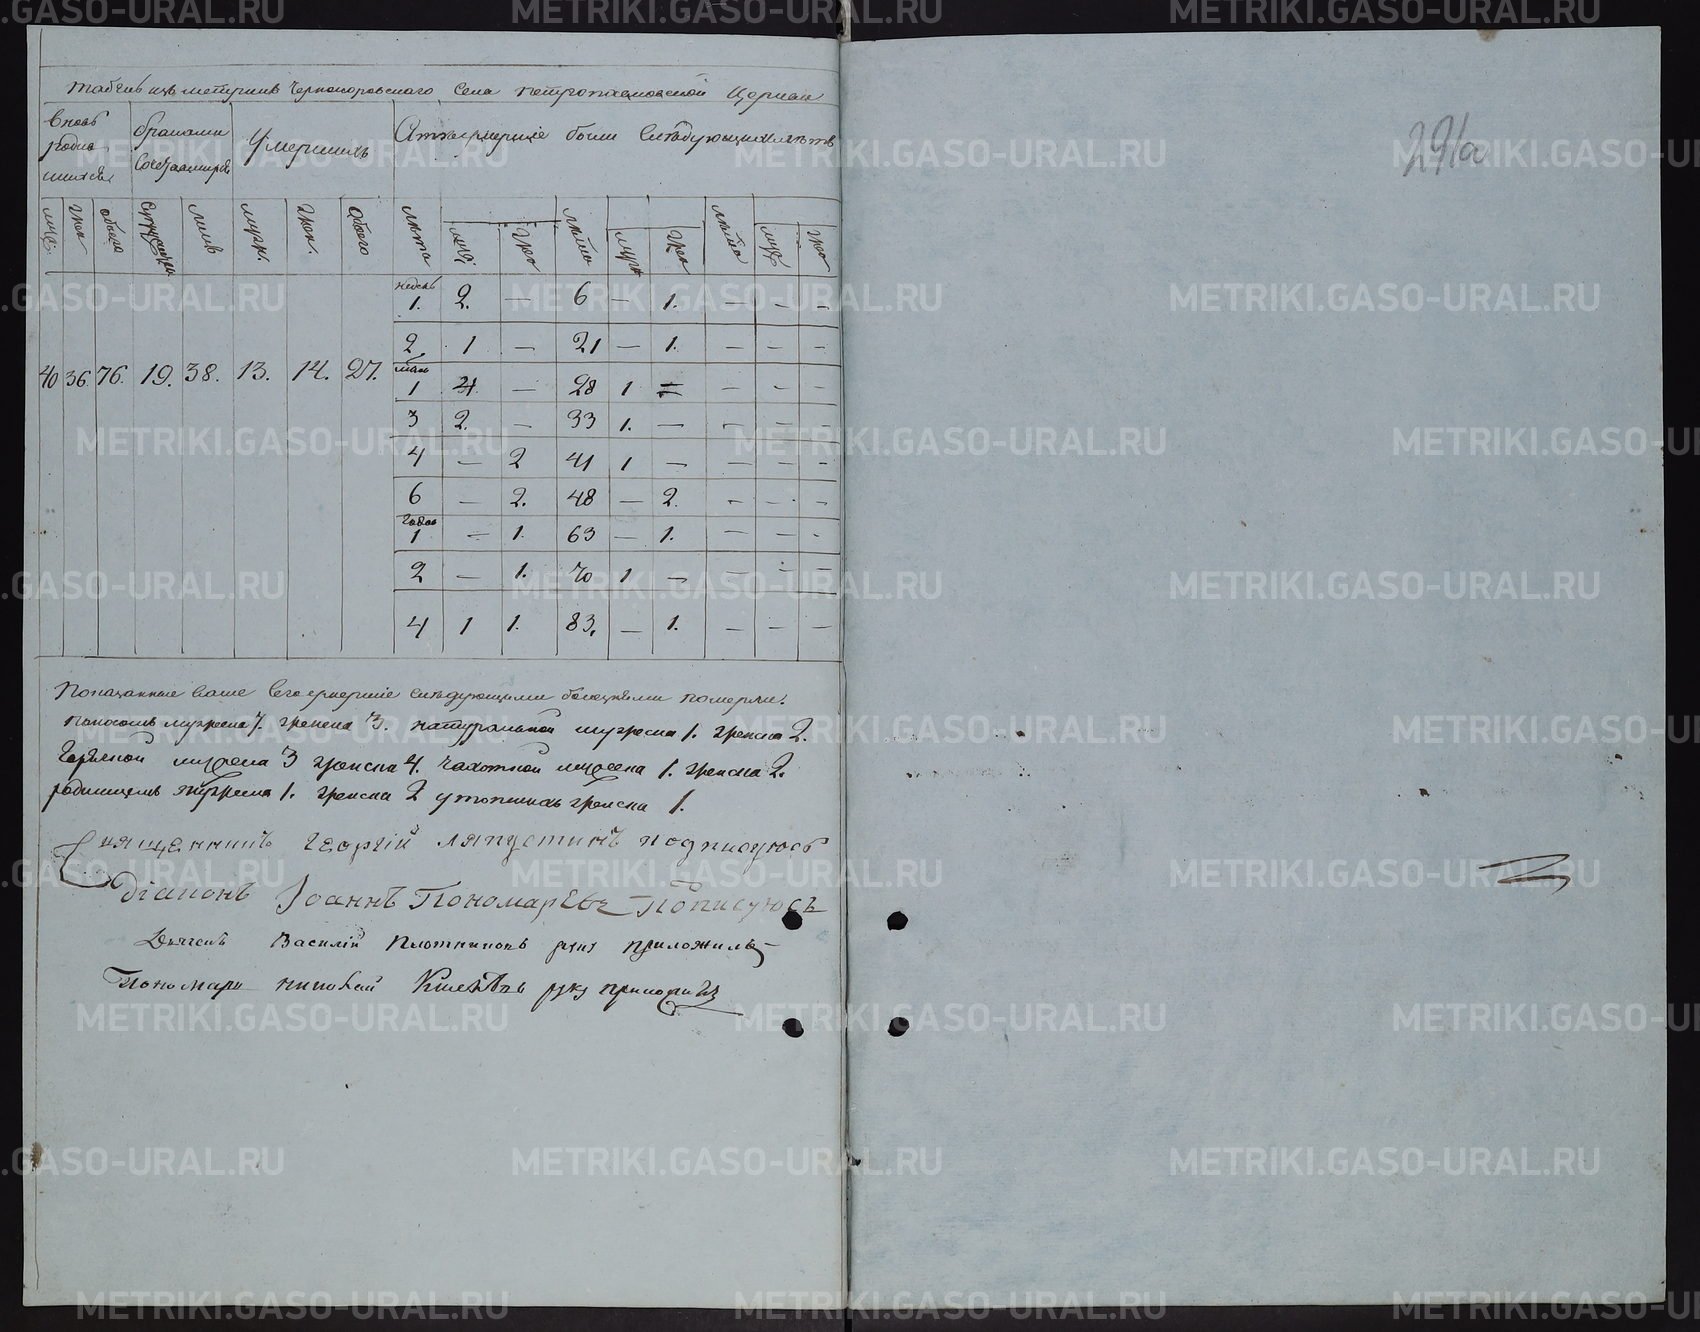 Табель изъ метрикъ Чернокоровскаго Села Петропавловской Церкви
Вновь родившихся
браками сочетавшихся
Умершихъ
А тѣ умершие были Слѣдующихъ лѣтъ
муж. жен. обоего супружествъ лицъ мужс. жен. обоего лѣта муж. жен. лѣта муж. жен. лѣта муж. жен.
недель 1. 2. — 6 — 1. — — —
2 1 — 21 — 1. — — —
40 36 76. 19. 38. 13. 14. 27.
мѣсяц 1 4 — 28 1 — — — —
3 2. — 33 1. — — — —
4 — 2 41 1 — — — —
6 — 2. 48 — 2. — — —
годов 1 — 1. 63 — 1. — — —
2 — 1. 70 1 — — — —
4 1 1. 83. — 1. — — —
Показанные выше Сего умершие слѣдующими болезнями померли:
поносомъ мужеска 7. женска 3. натуральной мужеска 1. женска 2.
Горячкой мужеска 3 женска 4. Чахоткой мужеска 1. женска 2.
родимцемъ мужеска 1. женска 2 утопшихъ женска 1.
Священникъ Георгий Ляпустинъ подписуюсь
Діаконъ Іоаннъ Пономаревъ Пописуюсь
Дьячекъ Василий Плотниковъ руку приложилъ
Пономарь руку приложилъ
291а
METRIKI.GASO-URAL.RU